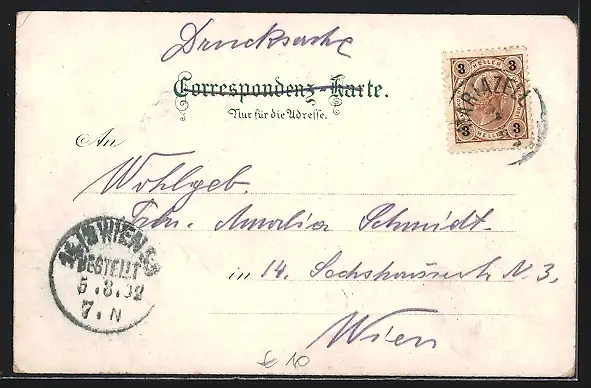 Drucksache
Correspondenz-Karte.
Nur für die Adresse.
3 HELLER 3
3 3
MARIAZELL
An
Wohlgeb.
Frln. Amalia Schmidt
in 14. Sechshauserstr. N. 3,
Wien
WIEN
BESTELLT
6.8.02
7. N
£ 10